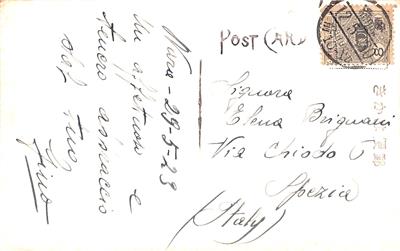 Nara - 29-5-23
Un affettuoso e
tenero abbraccio
dal tuo
Gino
POST CARD
Signora
Elena Brignani
Via Chiodo 6
Spezia
(Italy)